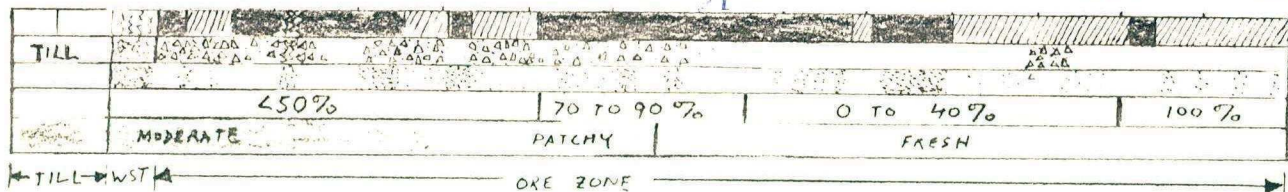 TILL
<50% 70 TO 90% 0 TO 40% 100%
MODERATE PATCHY FRESH
TILL WST ORE ZONE